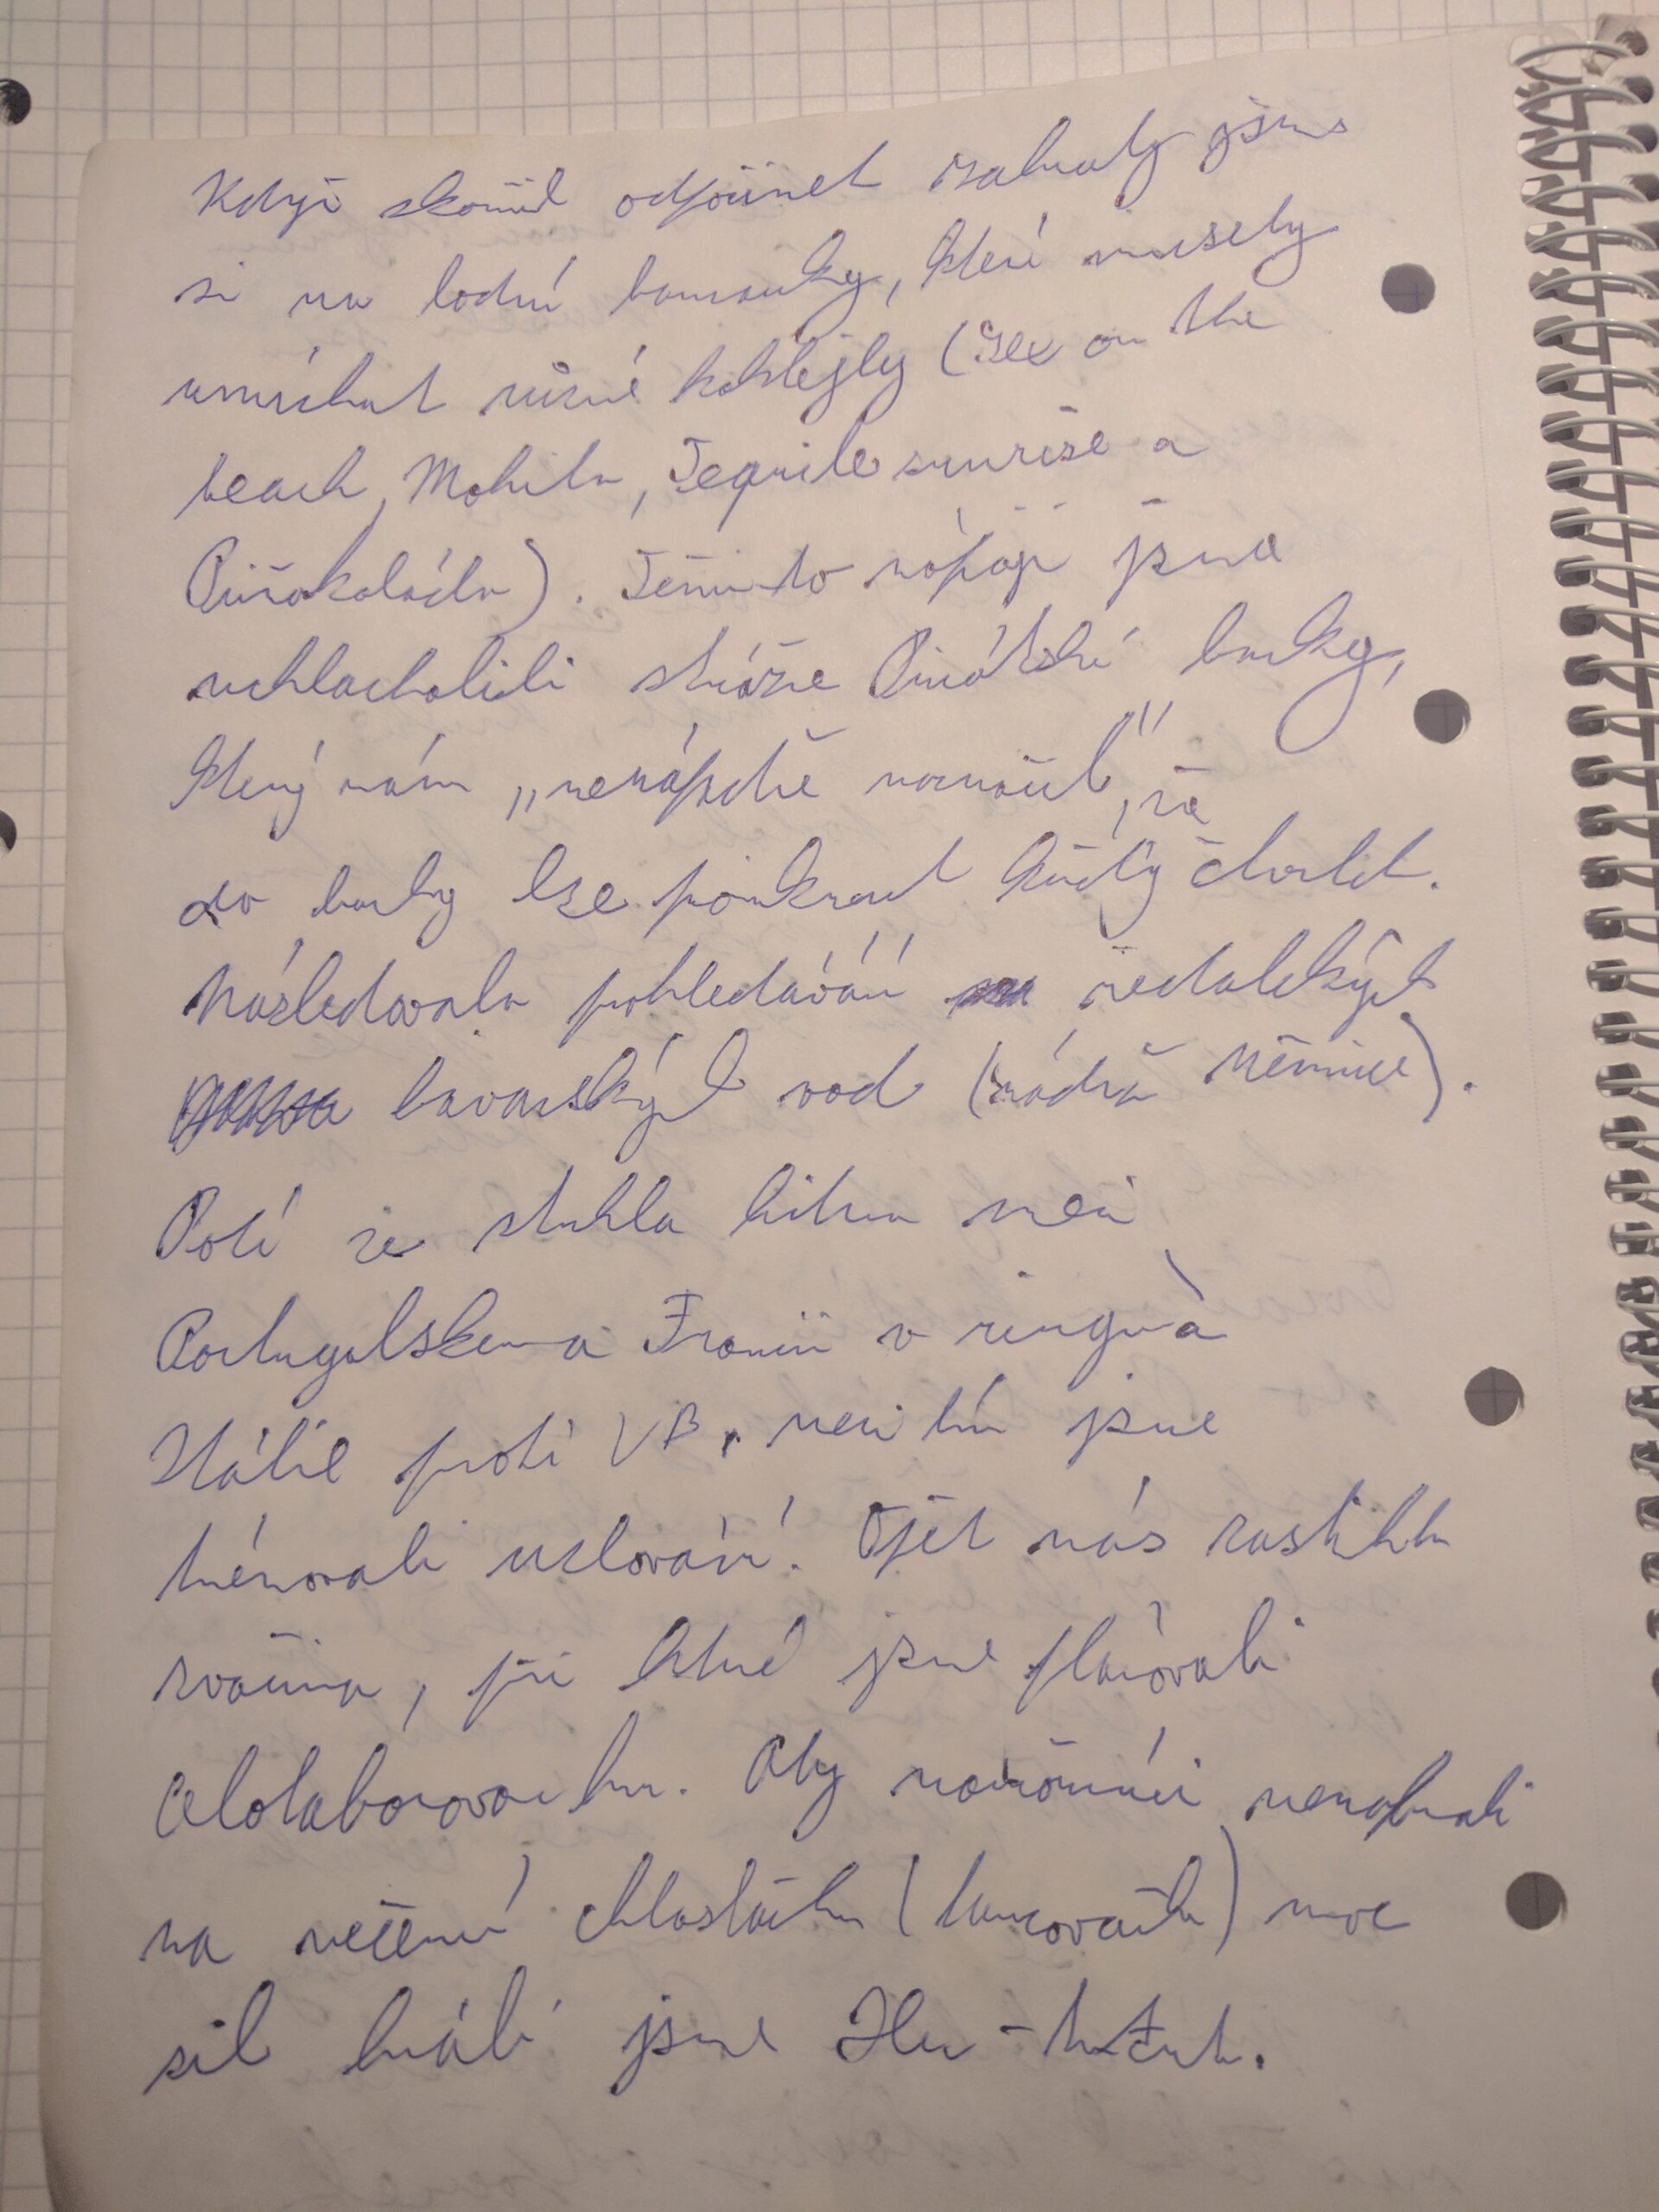 Když skončil odpočinek zahrály jsme
si na lodní barmanky, které musely
umíchat různé koktejly (Sex on the
beach, Mohito, Tequile sunrise a
Piňakoláda). Těmito nápoji jsme
uchlácholili stráže Pirátské barky,
který nám „nenápadně naznačil", že
do barky lze proniknout každý čtvrtek.
Následovalo prohledávání nedalekých
bavorských vod (nádrž Němnice).
Poté se strhla bitva mezi
Portugalskem a Francií v ringu a
Itálie proti VB, mezitím jsme
trénovali uzlování. Opět nás zastihla
svačina, při které jsme plánovali
celotáborovou hru. Aby námořníci nenabrali
na večerní chlastačku (tancovačku) moc
sil hráli jsme Hu-tututu.